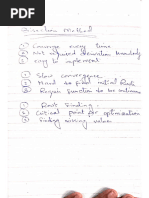 Bisection Method
① Converge every time
② Not required derivative knowledge
③ easy to implement
① Slow convergence
② Hard to find initial Root
③ Require function to be continuous
① Root Finding
② Critical point for optimization
③ Finding missing values